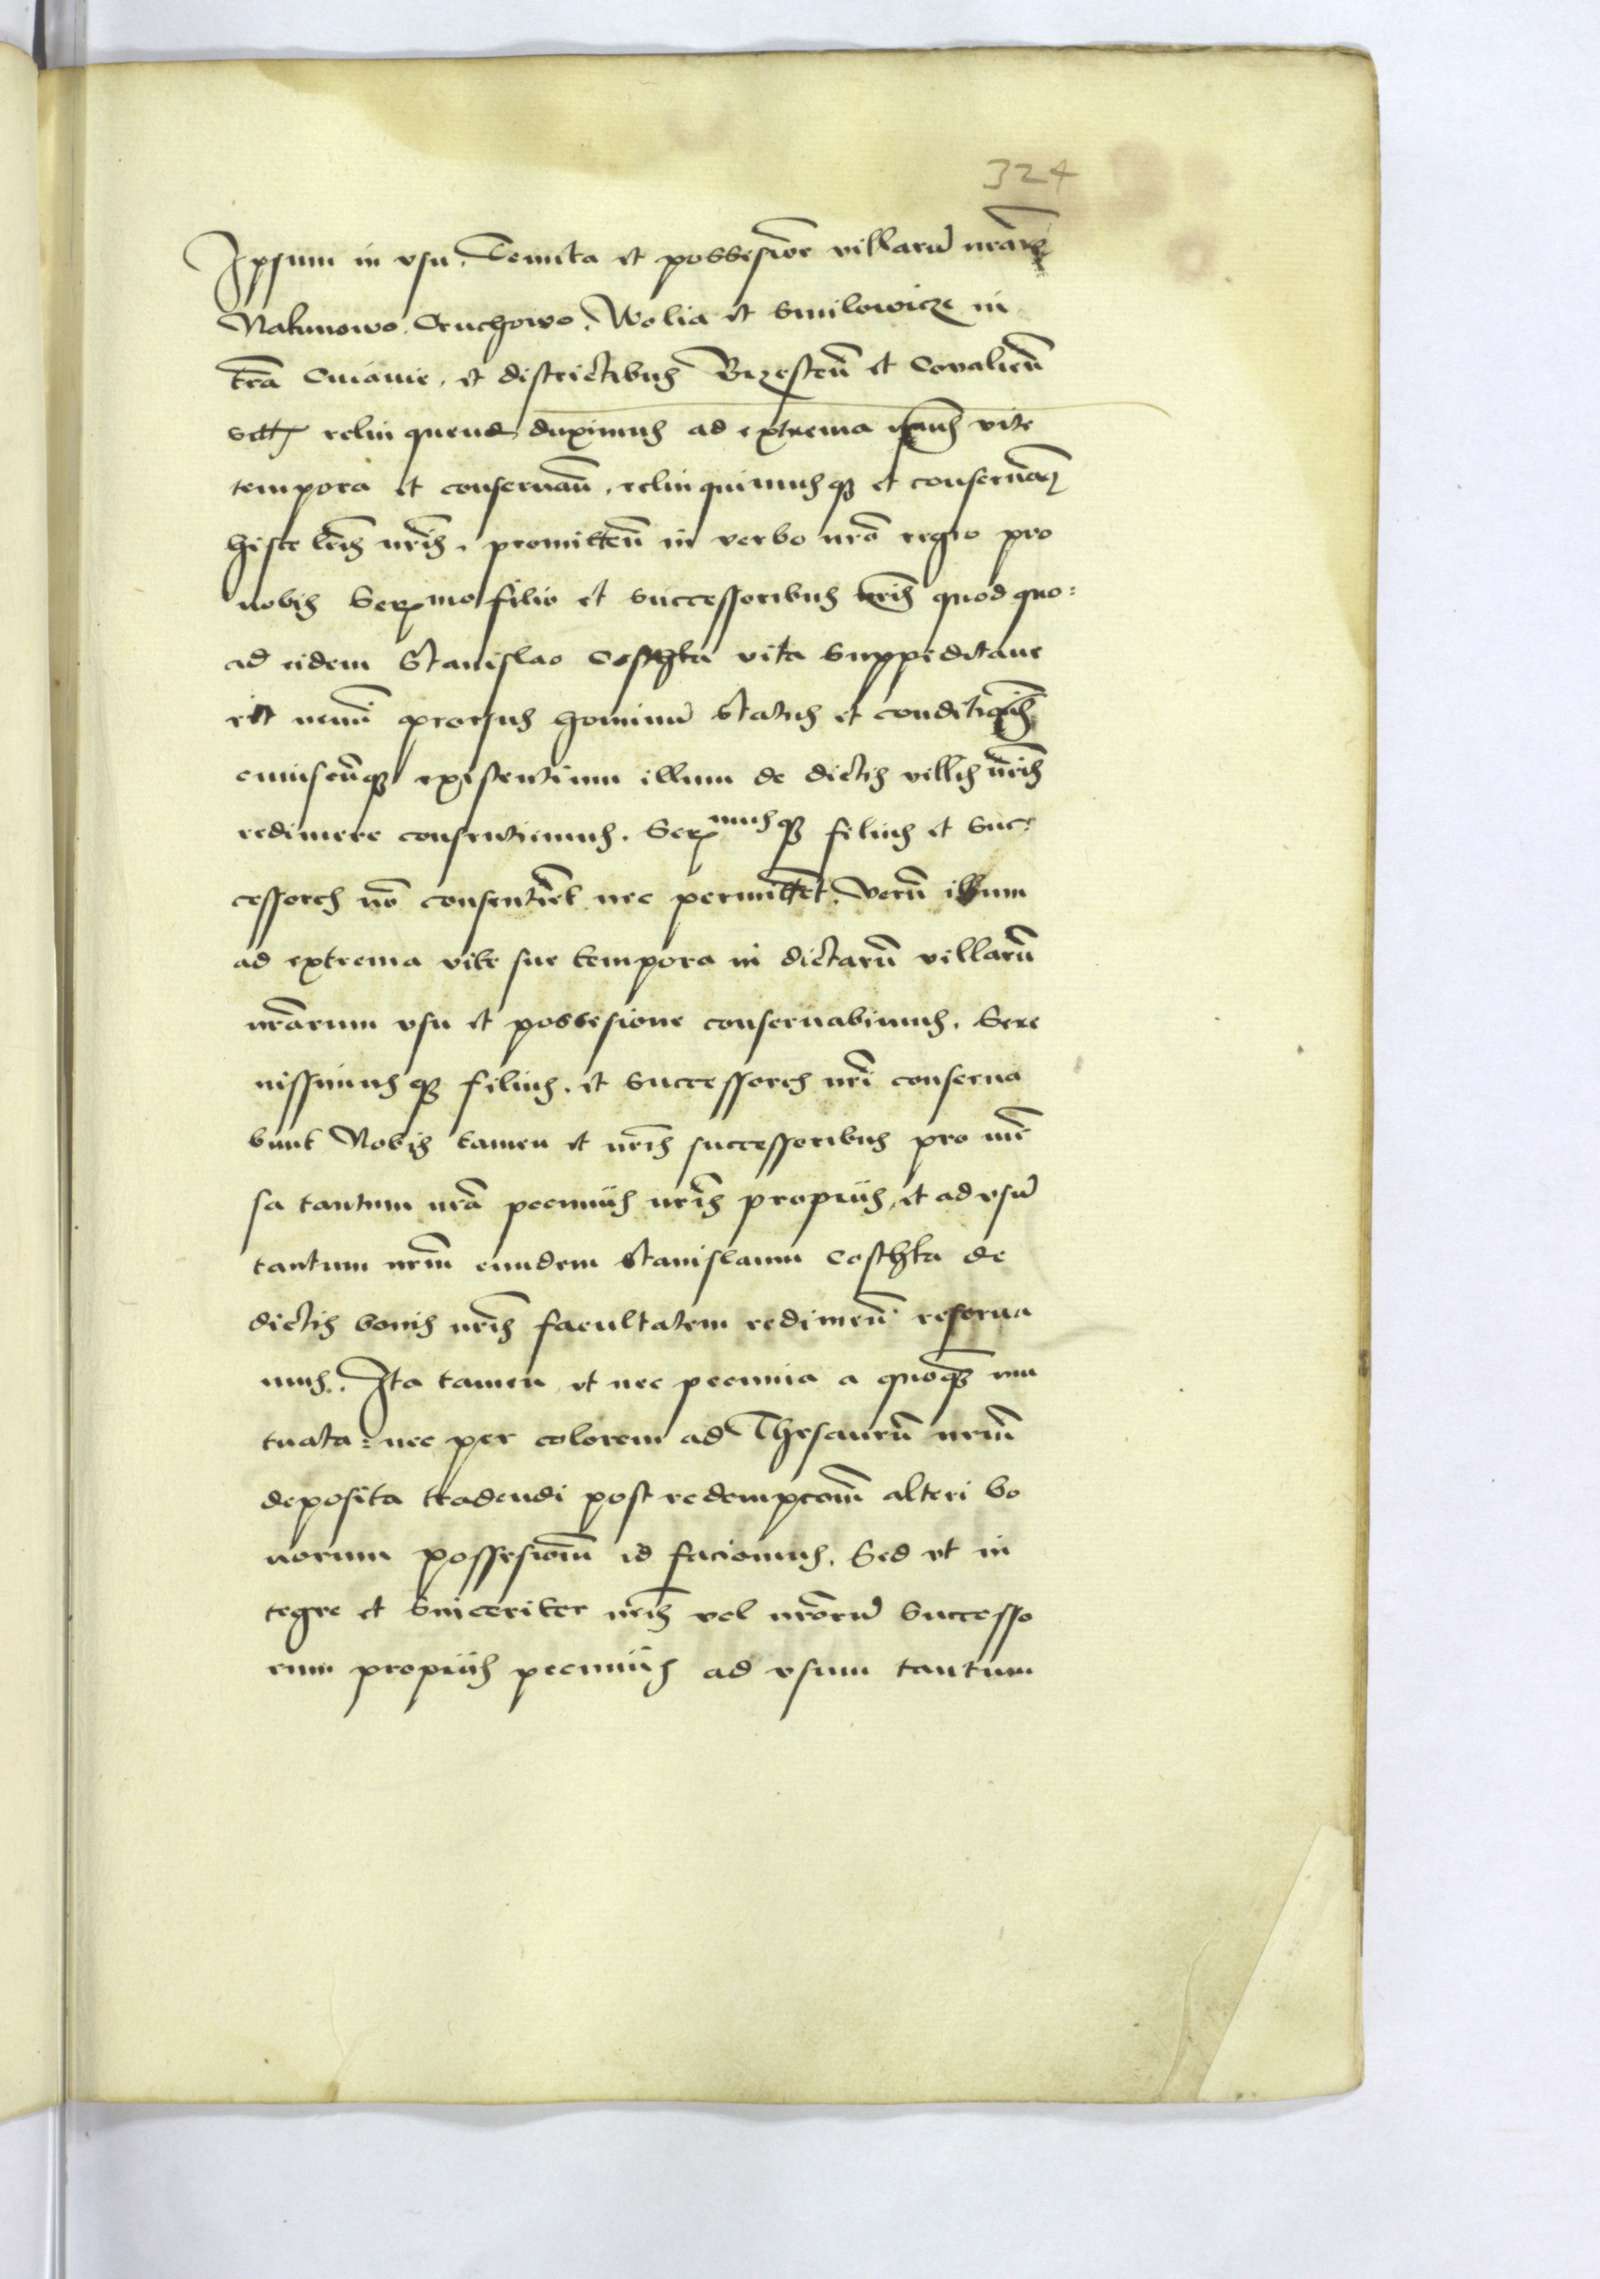 324
Ipsum in vsu, Tenuta et possesiõe villarũ nr̃arꝝ
Nakunowo, Cruchowo, Wolia et Smilowicze in
tr̃a Cuiauie, et districtibus Brzesteñ et Covalieñ
relinquend duximus ad extrema vite
tempora et conseruañ, relinquimusqꝫ et conseruam̃
hisce lr̃is nr̃is, promitteñ in verbo nr̃o regio pro
nobis Serᵐᵒ filio et successoribus nr̃is quod quo:
ad eidem Stanislao Costhka vita suppeditaue
rit nemĩ prorsus hominũ status et conditiõis
cuiuscũqꝫ existentium illum de dictis villis nr̃is
redimere consentiemus. Serᵐᵘˢqꝫ filius et suc:
cessores nõ consentiẽt nec permittẽt, verũ illum
ad extrema vite sue tempora in dictarũ villarũ
nr̃arum vsu et possesione conseruabimus, Sere
nissimusqꝫ filius, et successores nr̃i conserua
bunt Nobis tamen et nr̃is successoribus pro mẽ
sa tantum nr̃a pecuniis nr̃is propriis, et ad vsũ
tantum nr̃um eundem Stanislaum Costhka de
dictis bonis nr̃is facultatem redimeñ reserua
mus. Ita tamen vt nec pecunia a quoqꝫ mu
tuata: nec per colorem ad Thesaurũ nr̃um
deposita tradendi post redempcom̃ alteri bo
norum possesiom̃ id faciemus. Sed vt in
tegre et sinceriter nr̃is vel nr̃orũ successo
rum propriis pecuniis ad vsum tantum